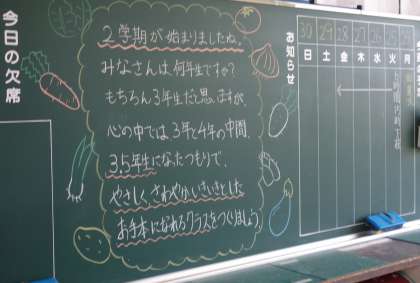 今日の欠席
2学期が始まりましたね。
みなさんは何年生ですか?
もちろん3年生だと思いますが、
心の中では3年と4年の中間、
3.5年生になったつもりで、
やさしく、さわやか、いきいきとした
お手本になれるクラスをつくりましょう。
お知らせ
30 29 28 27 26 25
日 土 金 木 水 火 月